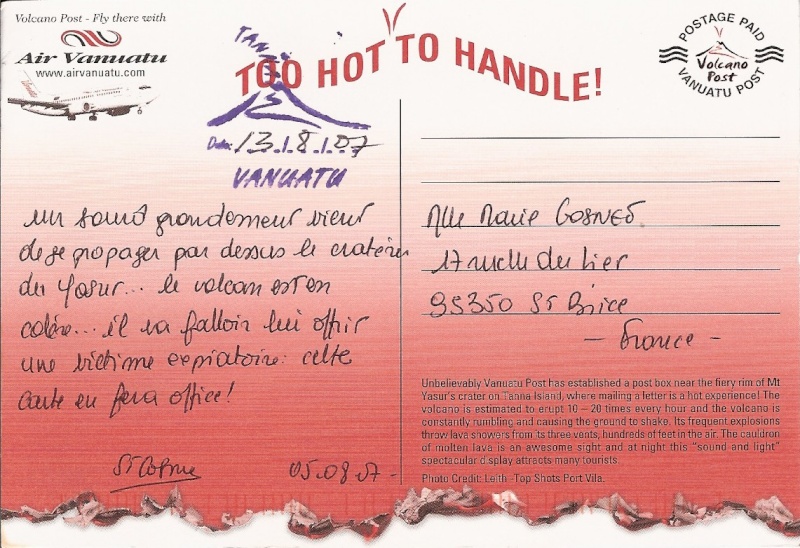 Volcano Post - Fly there with
Air Vanuatu
www.airvanuatu.com
TOO HOT TO HANDLE!
POSTAGE PAID
Volcano
Post
VANUATU POST
TANNA
Date: 13.8.07
VANUATU
un sourd grondement vient
de se propager par dessus le cratère
du Yasur... le volcan est en
colère... il va falloir lui offrir
une victime expiatoire: cette
carte en fera office!
05.08.07-
Mlle Marie
17 ruelle du Lier
95350 St Brice
- France -
Unbelievably Vanuatu Post has established a post box near the fiery rim of Mt
Yasur's crater on Tanna Island, where mailing a letter is a hot experience! The
volcano is estimated to erupt 10 – 20 times every hour and the volcano is
constantly rumbling and causing the ground to shake. Its frequent explosions
throw lava showers from its three vents, hundreds of feet in the air. The cauldron
of molten lava is an awesome sight and at night this "sound and light"
spectacular display attracts many tourists.
Photo Credit: Leith -Top Shots Port Vila.